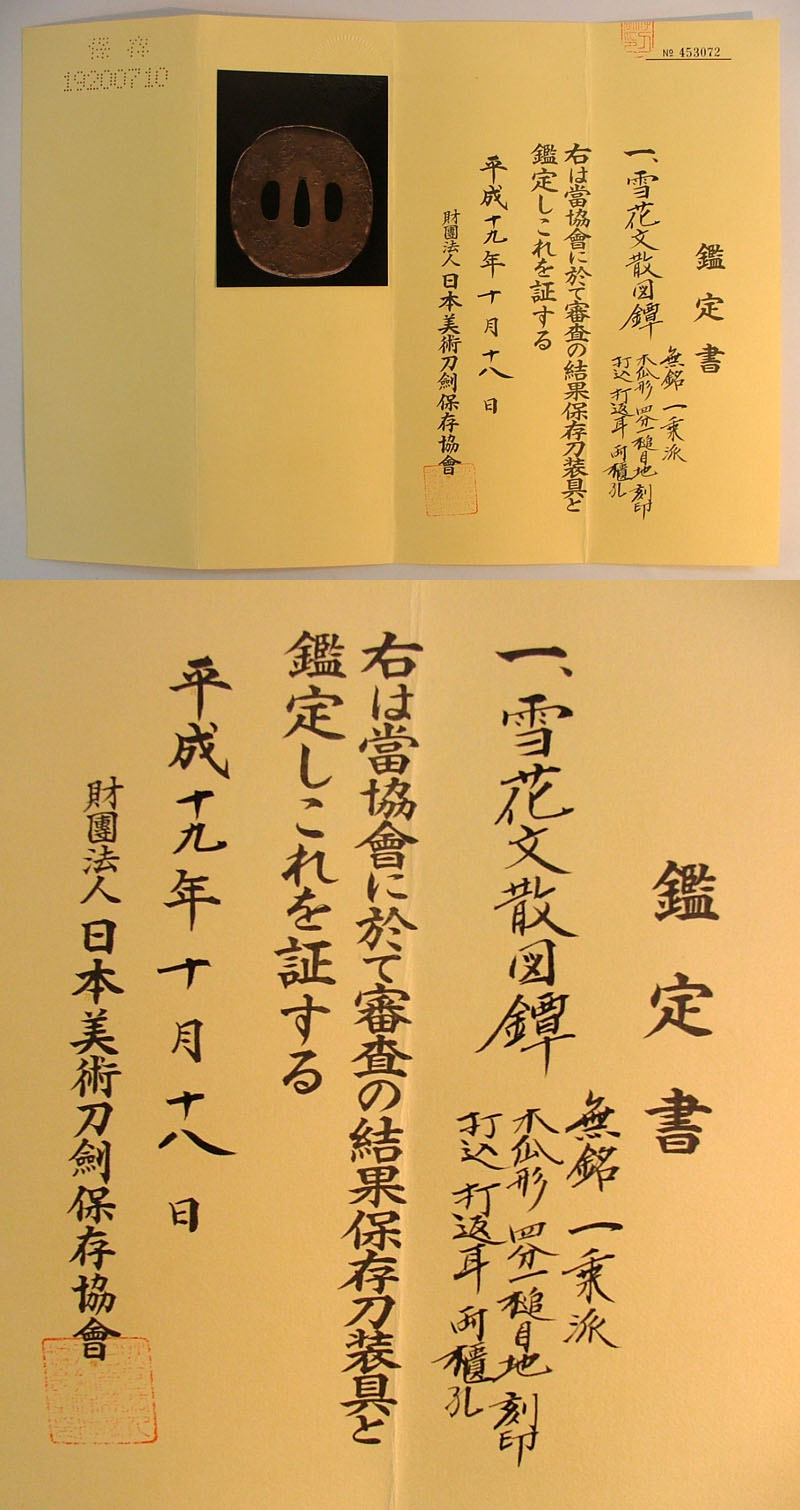 保存
19200710
№ 453072
鑑定書
一、雪花文散図鐔
無銘 一乗派
木瓜形 四分一槌目地 刻印
打込 打返耳 両櫃孔
右は當協會に於て審査の結果保存刀装具と
鑑定しこれを証する
平成十九年十月十八日
財團法人日本美術刀劍保存協會
鑑定書
一、雪花文散図鐔
無銘 一乗派
木瓜形 四分一槌目地 刻印
打込 打返耳 両櫃孔
右は當協會に於て審査の結果保存刀装具と
鑑定しこれを証する
平成十九年十月十八日
財團法人日本美術刀劍保存協會